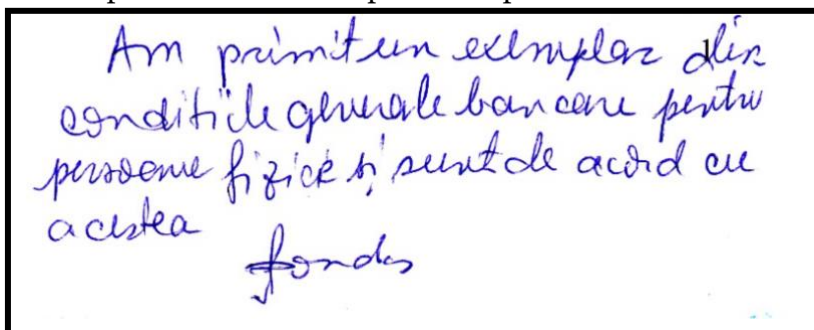 Am primit un exemplar din
conditiile generale bancare pentru
persoane fizice si sunt de acord cu
acestea